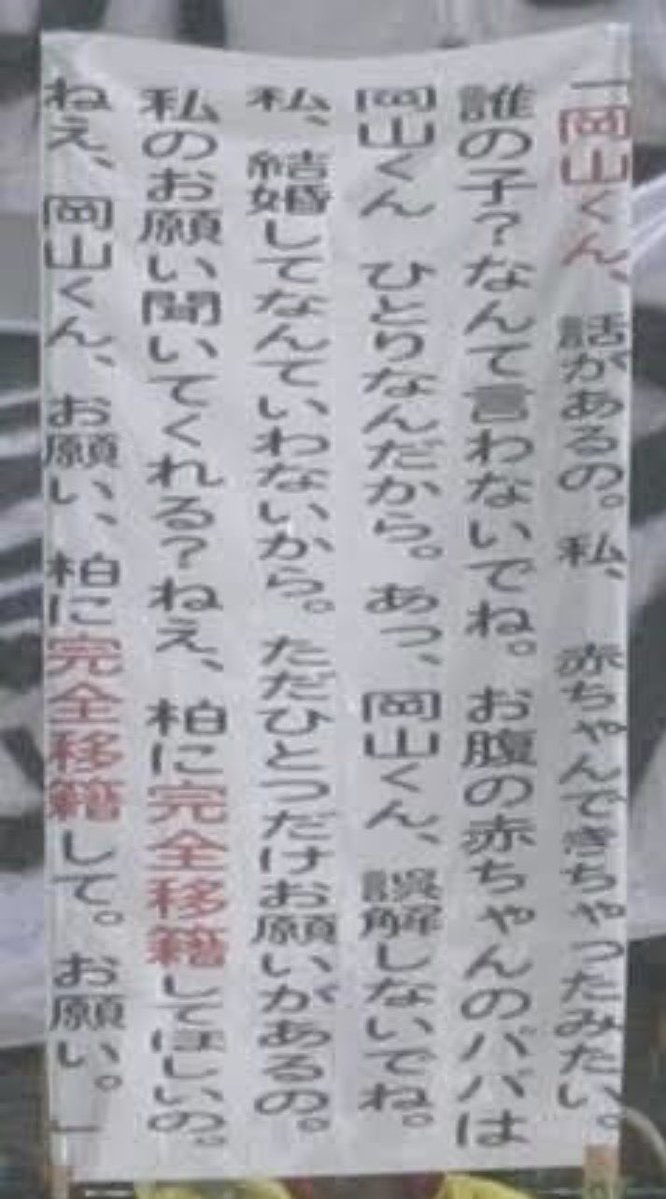 「岡山くん、話があるの。私、赤ちゃんできちゃったみたい。
誰の子？なんて言わないでね。お腹の赤ちゃんのパパは
岡山くん　ひとりなんだから。あっ、岡山くん、誤解しないでね。
私、結婚してなんていわないから。ただひとつだけお願いがあるの。
私のお願い聞いてくれる？ねえ、柏に完全移籍してほしいの。
ねえ、岡山くん、お願い、柏に完全移籍して。お願い。」